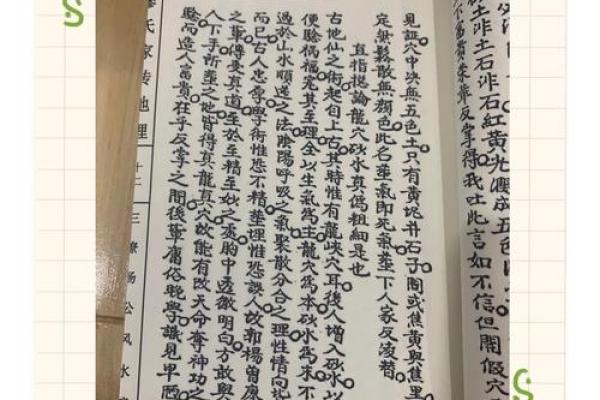 土非土石非石紅黃光潤成五色
下富貴榮華反掌得我吐此言如不信但開假穴
見証穴中決無五色土只有黃坭并石子間或焦黃與焦黑
定無鬆散無顏色此名葬氣即死氣葬下人家反凌替
直指總論龍穴砂水真僞粗細是也
古地仙之術起自上古其時惟有龍峽穴耳後人增入砂水以
便驗禍福究其至理全以生氣爲生龍穴爲本砂水爲末不
過於山水順逆之法陰陽呼吸之氣聚散分合之理性情向
而已古人忠厚學術惟恐不精葬理惟恐誤人故郭楊曾廖
之輩得受真道至於至精至妙之處胸中透徹明白方敢與
人下手所葬之地皆得真龍真穴故能有改天命奪神功之
驗而造人富貴在乎反掌之間後輩庸俗晚學識見卑陋
氏家传地理
十二
三僚杨公风水
S
S